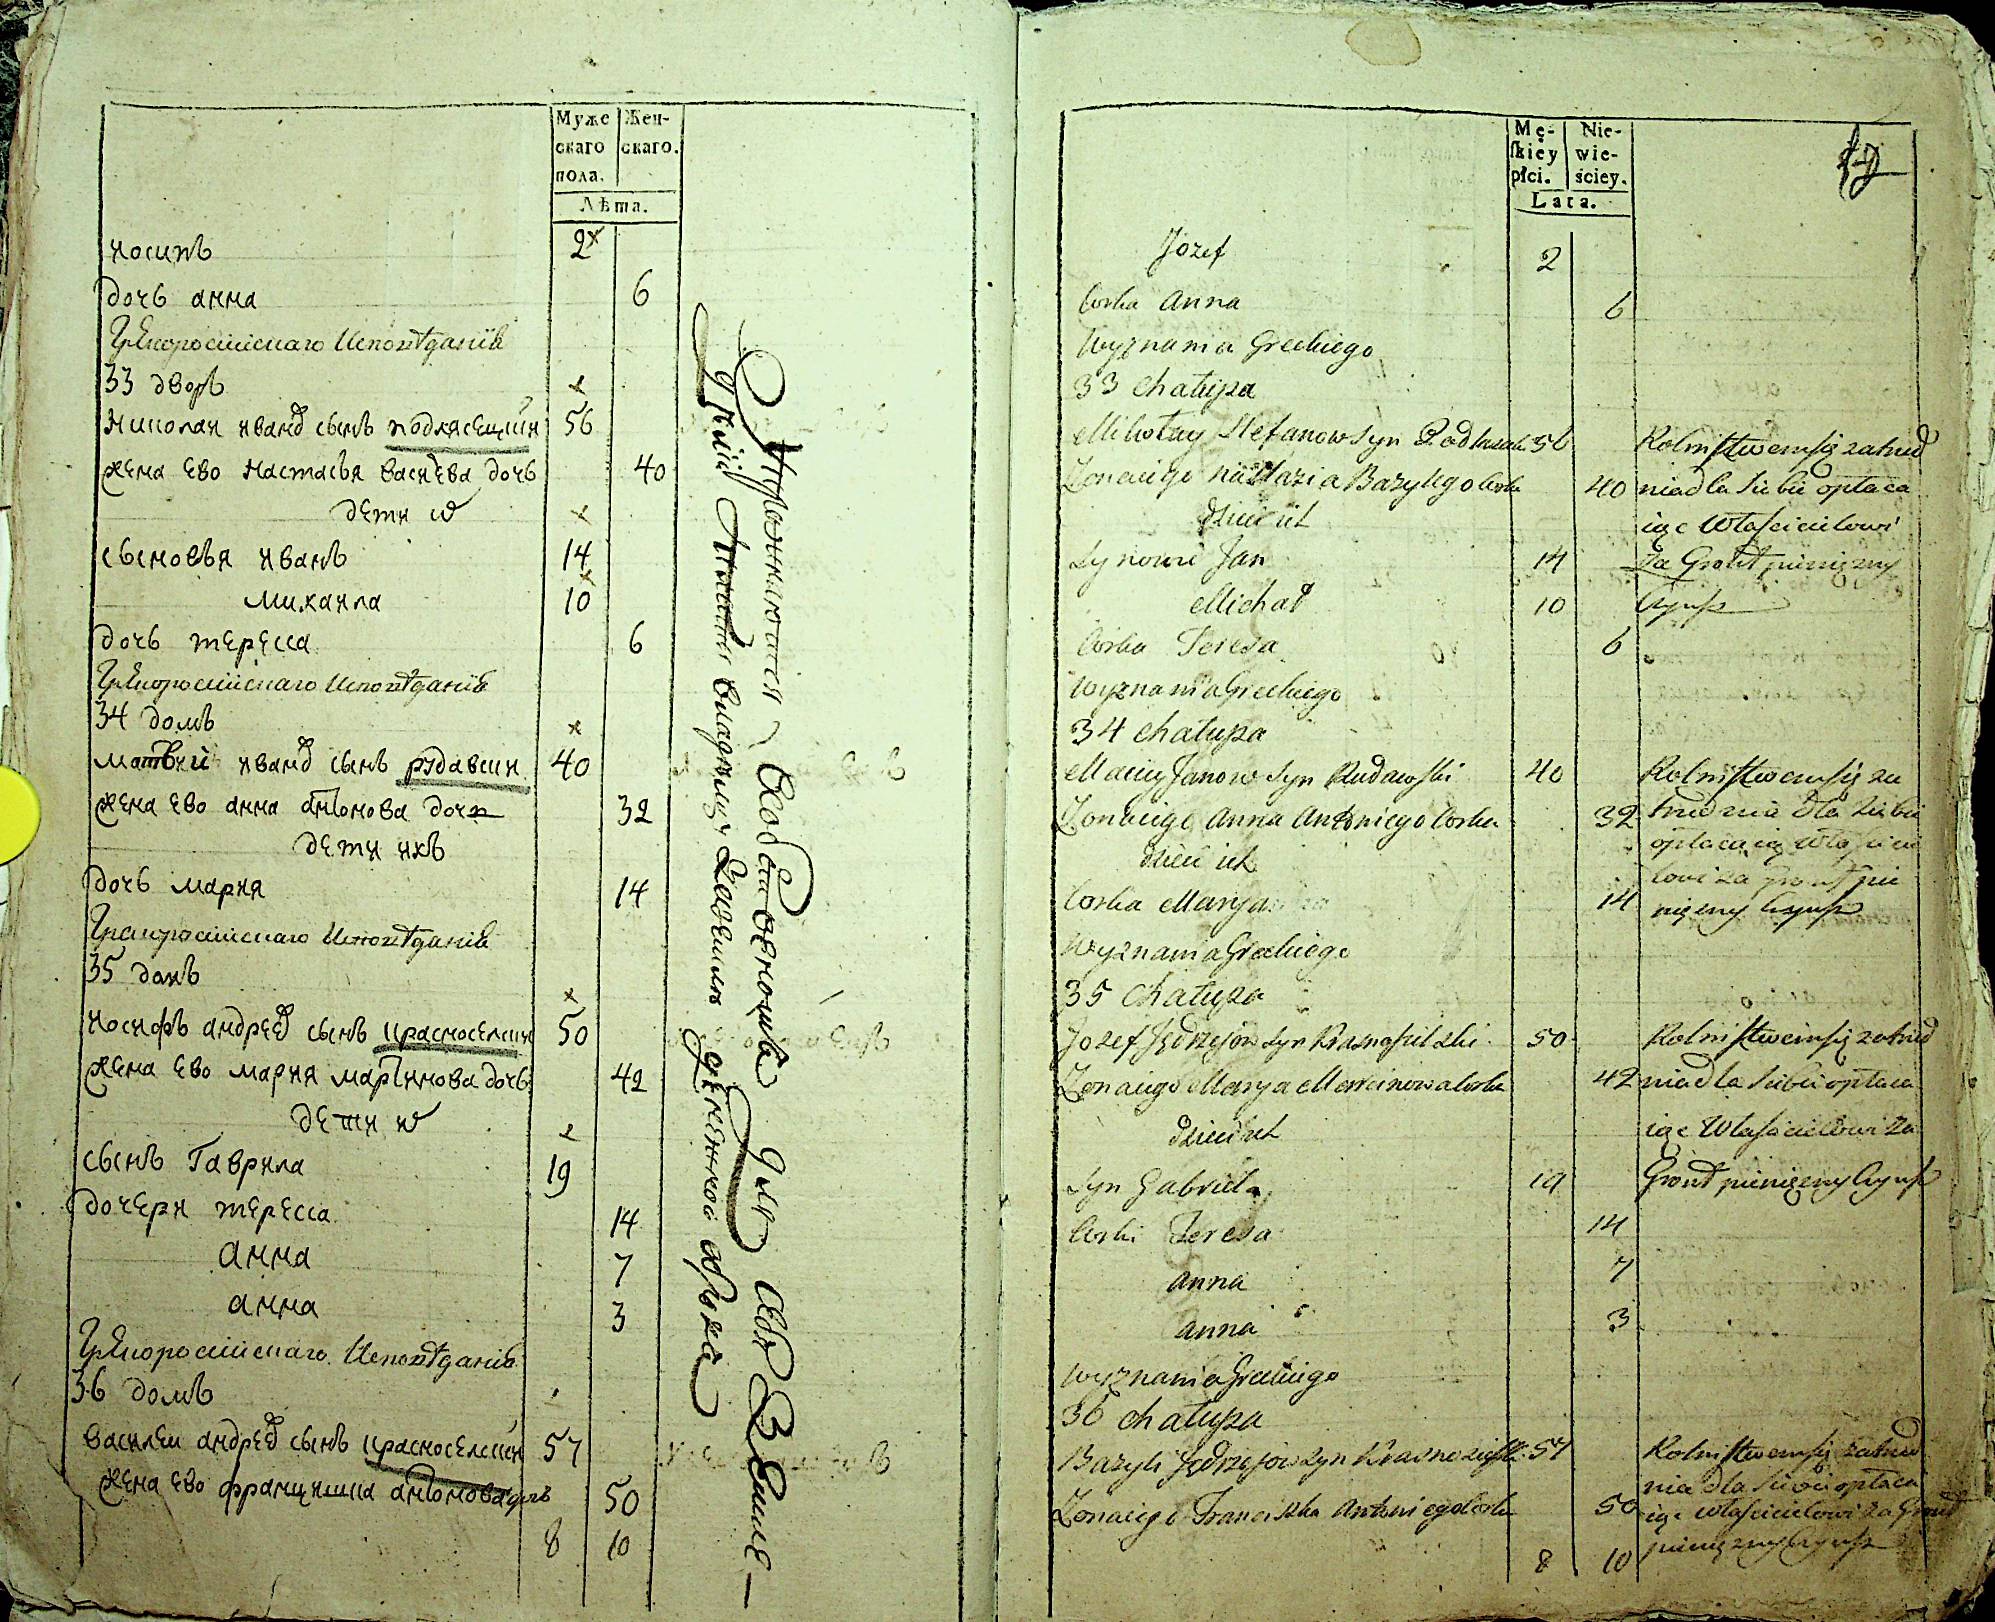 Муже
скаго
пола.
Жен-
скаго.
Лѣта.
иосипъ 2
дочь анна 6
Грекороссїйскаго Исповѣданїѧ
33 дворъ
николаи иванов сынъ подлясецкии 56
жена ево настасья васил̾ева дочь 40
дети их
сыновья иванъ 14
михаила 10
дочь тересса 6
Грекороссїйскаго Исповѣданїѧ
34 домъ
матвей иванов сынъ рудавски 40
жена ево анна антонова дочь 32
дети ихъ
дочь мария 14
Грекороссїйскаго Исповѣданїѧ
35 домъ
иосифъ андреев сынъ красноселски 50
жена ево мария мартинова дочь 42
дети их
сынъ Гаврила 19
дочери тересса 14
анна 7
анна 3
Грекороссїйскаго Исповѣданїѧ
36 домъ
василеи андреев сынъ красноселски 57
жена ево францишка антонова дочь 50
8 10
Упражняются в хлебопашенномъ для себя Земле-
делїи платятъ владельцу за землю денежной оброкъ
Mę-
ſkiey
płci.
Nie-
wie-
ściey.
Lata.
Jozef 2
Corka Anna 6
Wyznania Greckiego
33 Chałupa
Mikołay Stefanow Syn Podlasecki 56 Rolnistwem się zatrud
Zona iego Nastazia Bazylego Corka 40 nia dla siebie opłaca
dzieci ich iąc Włascicielowi
Synowie Jan 14 Za Gront pieniężny
Michał 10 Czynsz
Corka Teresa 6
Wyznania Greckiego
34 Chałupa
Maciey Janow Syn Rudawski 40 Rolnistwem się za
Zona iego Anna Antoniego Corka 32 trudnia dla siebie
dzieci ich opłacaiąc Włascicie
Corka Marya 14 lowi za Gront pie
niężny Czynsz
Wyznania Greckiego
35 Chałupa
Jozef Jędrzejow Syn Krasnosielski 50 Rolnistwem się zatrud
Zona iego Marya Marcinowa Corka 42 nia dla siebie opłaca
dzieci ich iąc Włascicielowi Za
Syn Gabriel 19 Gront pieniężny Czynsz
Corki Teresa 14
Anna 7
Anna 3
Wyznania Greckiego
36 Chałupa
Bazyli Jędrzejow Syn Krasnosielski 57 Rolnistwem się zatrud
nia dla siebie opłaca
Zona iego Franciszka Antoniego Corka 50 iąc Włascicielowi za Gront
8 10 pieniężny Czynsz